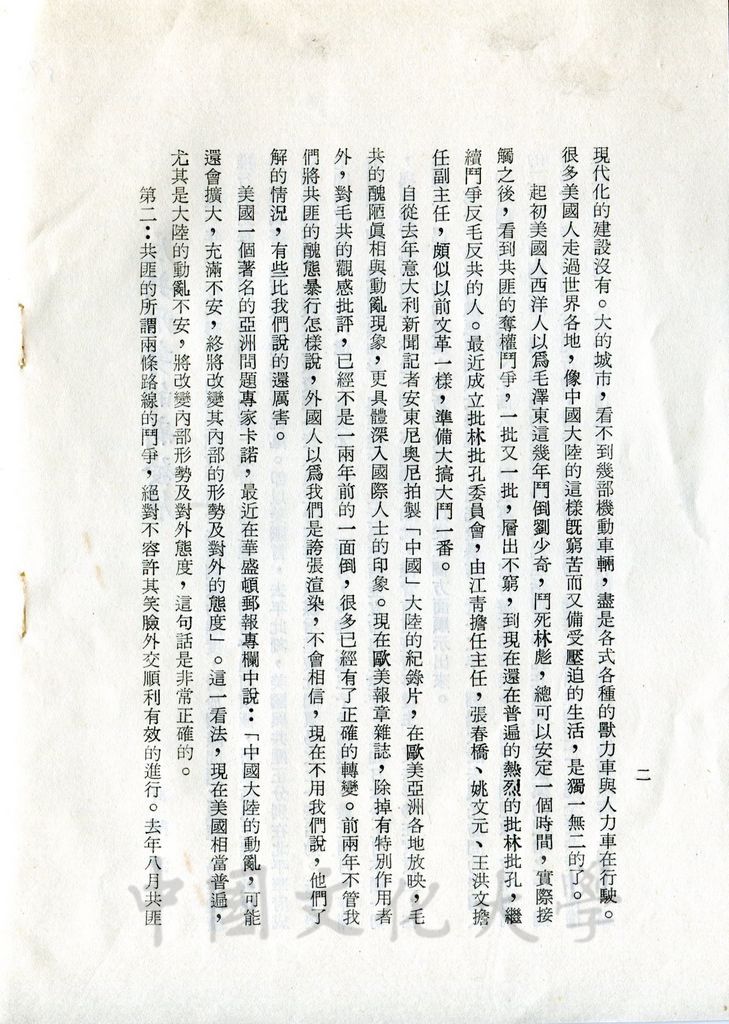 二
現代化的建設沒有。大的城市，看不到幾部機動車輛，盡是各式各種的獸力車與人力車在行駛。
很多美國人走過世界各地，像中國大陸的這樣旣窮苦而又備受壓迫的生活，是獨一無二的了。
起初美國人西洋人以爲毛澤東這幾年鬥倒劉少奇，鬥死林彪，總可以安定一個時間，實際接
觸之後，看到共匪的奪權鬥爭，一批又一批，層出不窮，到現在還在普遍的熱烈的批林批孔，繼
續鬥爭反毛反共的人。最近成立批林批孔委員會，由江靑擔任主任，張春橋、姚文元、王洪文擔
任副主任，頗似以前文革一樣，準備大搞大鬥一番。
自從去年意大利新聞記者安東尼奧尼拍製「中國」大陸的紀錄片，在歐美亞洲各地放映，毛
共的醜陋眞相與動亂現象，更具體深入國際人士的印象。現在歐美報章雜誌，除掉有特別作用者
外，對毛共的觀感批評，已經不是一兩年前的一面倒，很多已經有了正確的轉變。前兩年不管我
們將共匪的醜態暴行怎樣說，外國人以爲我們是誇張渲染，不會相信，現在不用我們說，他們了
解的情況，有些比我們說的還厲害。
美國一個著名的亞洲問題專家卡諾，最近在華盛頓郵報專欄中說：「中國大陸的動亂，可能
還會擴大，充滿不安，終將改變其內部的形勢及對外的態度」。這一看法，現在美國相當普遍，
尤其是大陸的動亂不安，將改變內部形勢及對外態度，這句話是非常正確的。
第二：共匪的所謂兩條路線的鬥爭，絕對不容許其笑臉外交順利有效的進行。去年八月共匪
中國文化大學